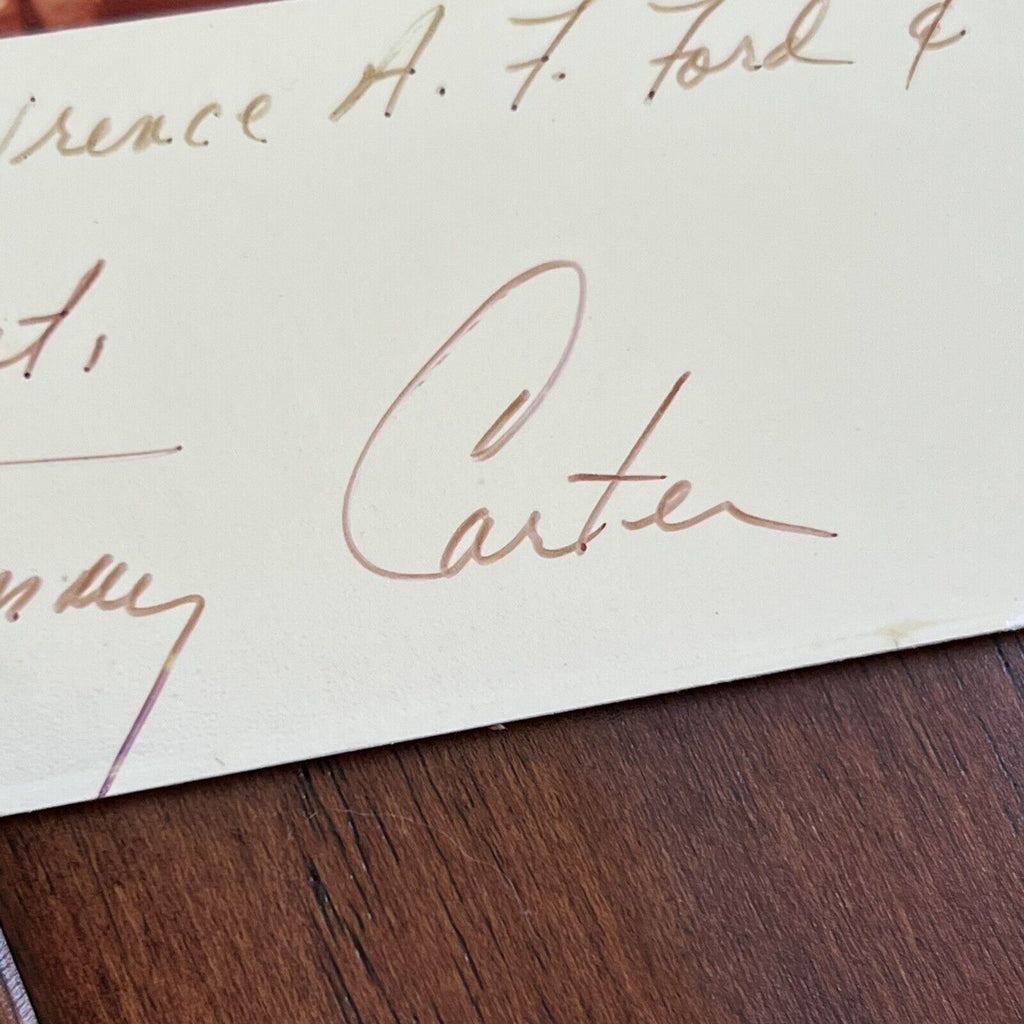 rence A. F. Ford &
t.
Carter